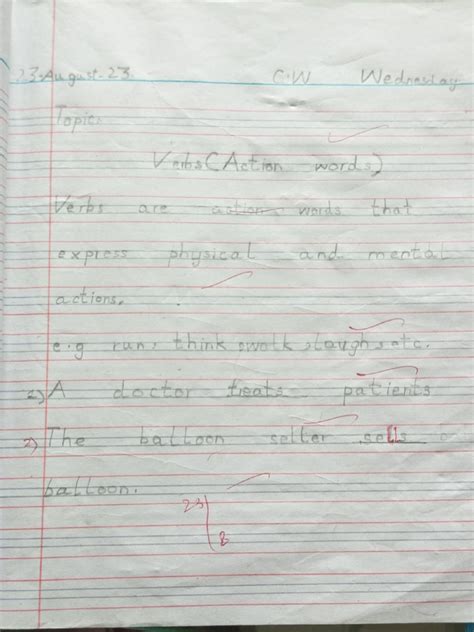 23-August-23. C.W Wednesday
Topic:
Verbs (Action words)
Verbs are action words that
express physical and mental
actions.
e.g run, think, walk, laugh, etc.
2) A doctor treats patients
The balloon seller sells
balloon.
23
8